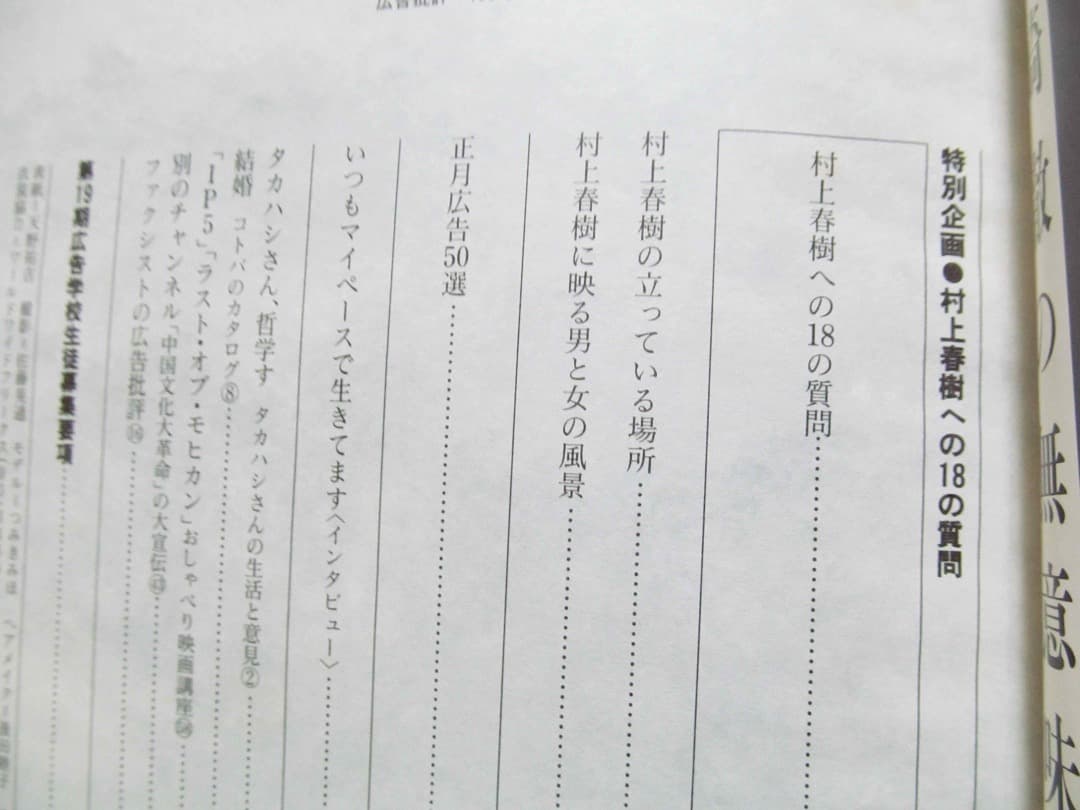 特別企画●村上春樹への18の質問
村上春樹への18の質問
村上春樹の立っている場所
村上春樹に映る男と女の風景
正月広告50選
いつもマイペースで生きてます〈インタビュー〉
タカハシさん、哲学す　タカハシさんの生活と意見②
結婚　コトバのカタログ⑧
「IP5」「ラスト・オブ・モヒカン」おしゃべり映画講座
別のチャンネル「中国文化大革命」の大宣伝㊸
ファクシストの広告批評
第19期広告学校生徒募集要項
表紙＝天野祐吉　撮影＝佐藤　モデル＝つみきみほ　ヘアメイク＝
の無意味